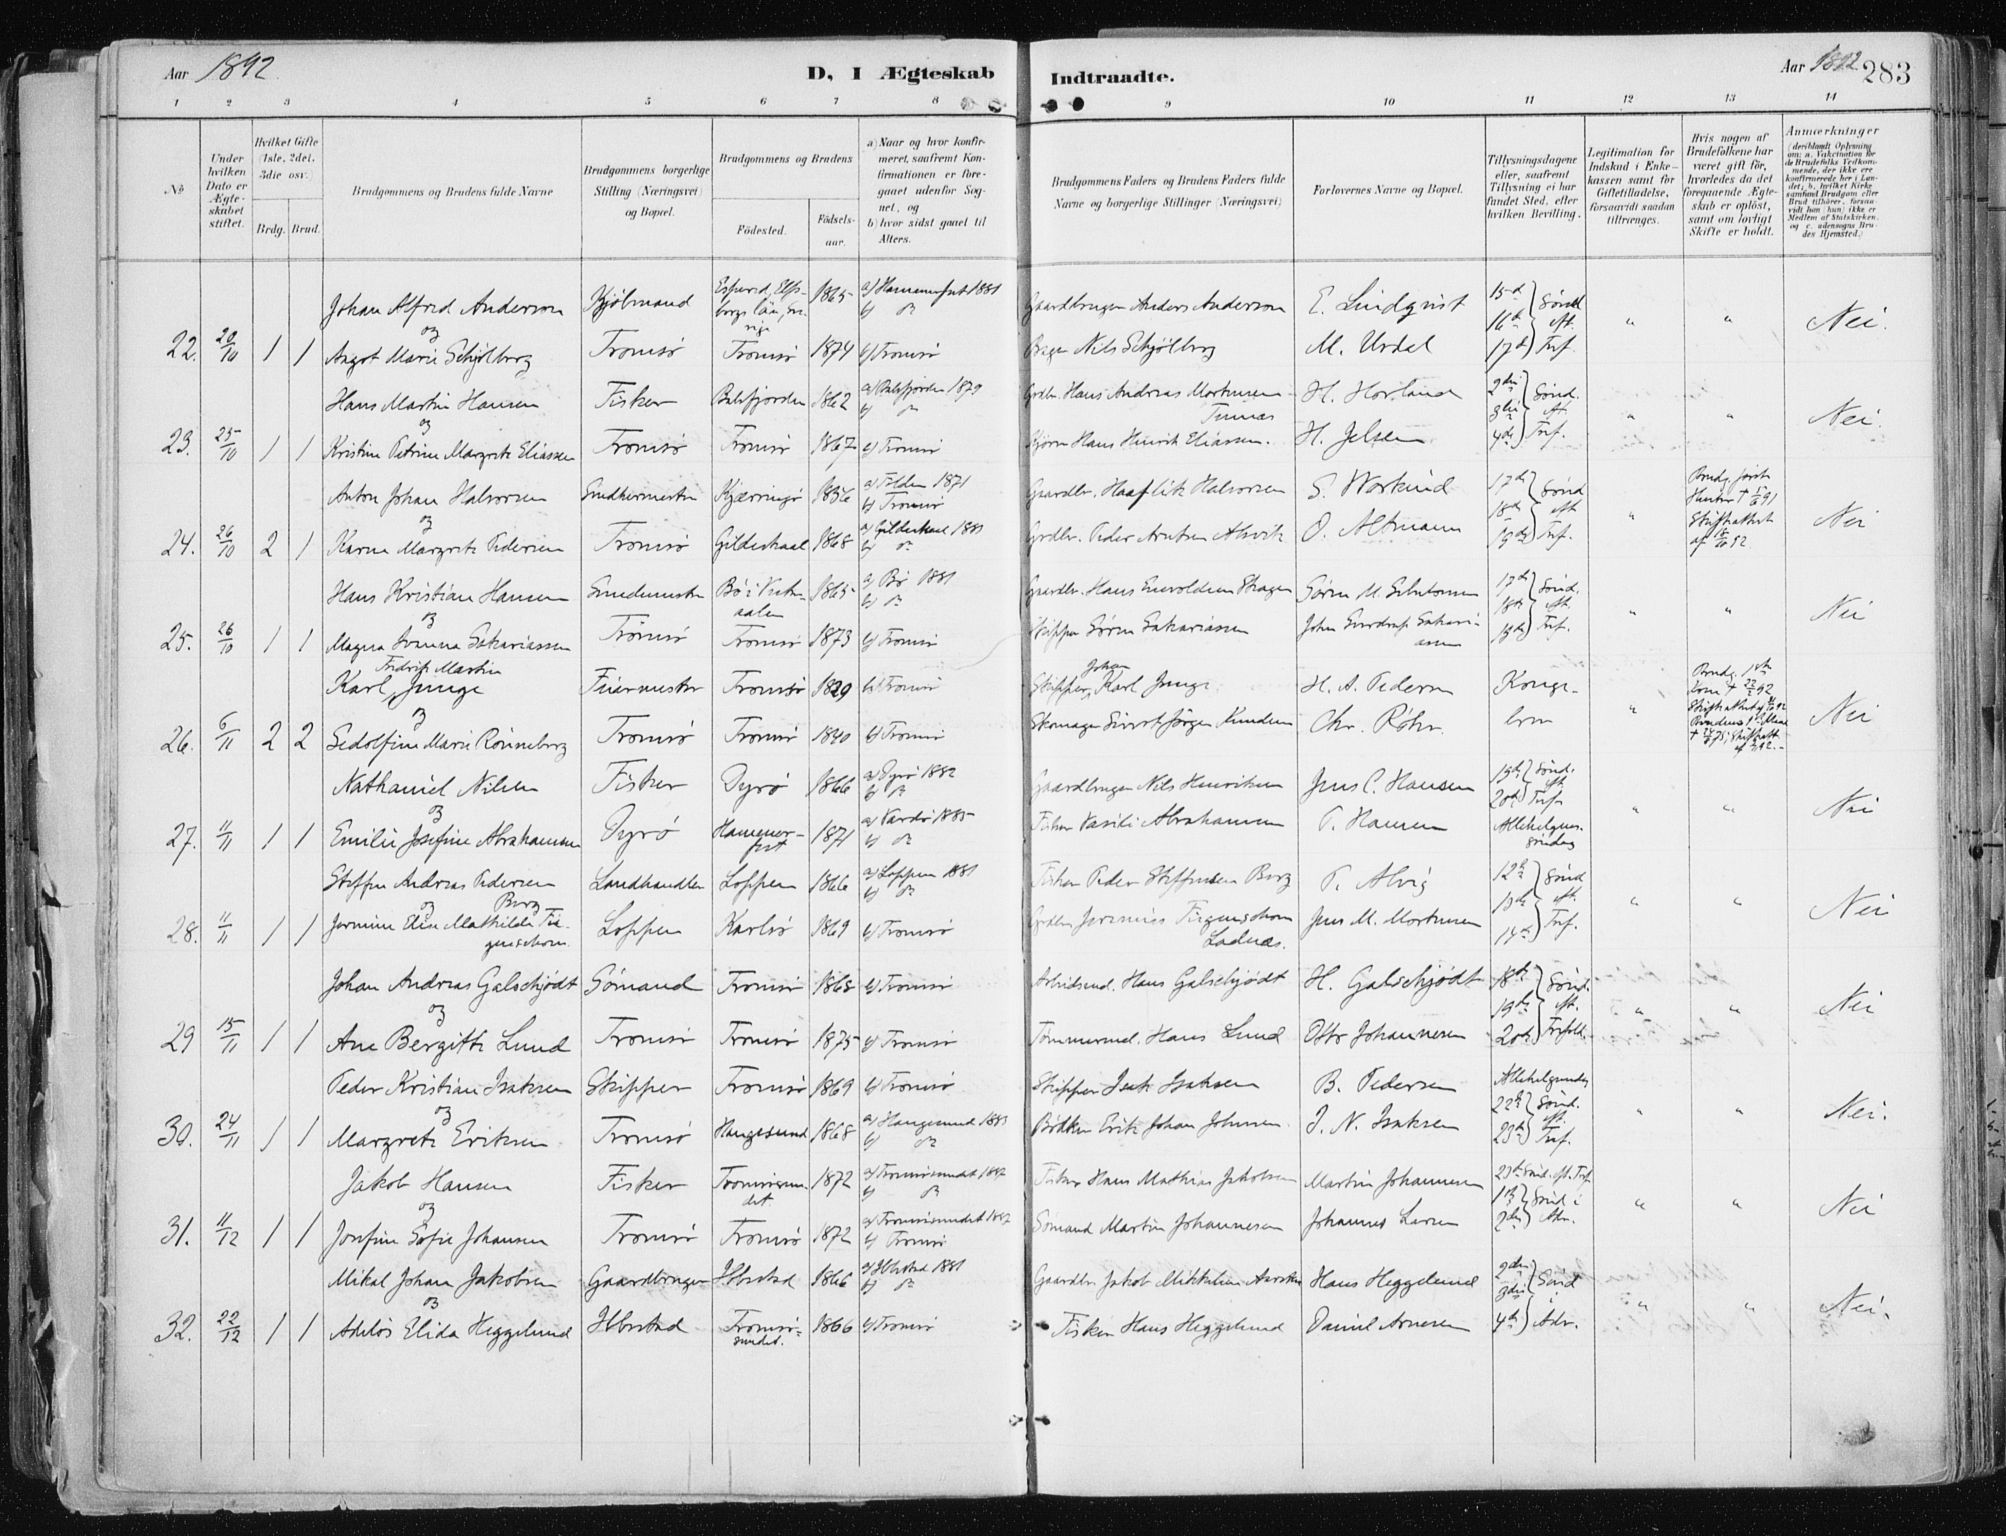 Aar 1892.
D, I Ægteskab
Indtraadte.
Aar 1892. 283
1 2 3 4 5 6 7 8 9 10 11 12 13 14
No
Under hvilken Dato er Ægteskabet stiftet.
Hvilket Gifte (1ste, 2det, 3die osv.)
Brdg. Brud.
Brudgommens og Brudens fulde Navne
Brudgommens borgerlige Stilling (Næringsvei) og Bopæl.
Brudgommens og Brudens
Fødested.
Fødselsaar.
a) Naar og hvor konfirmeret, saafremt Konfirmationen er foregaaet udenfor Sognet, og
b) hvor sidst gaaet til Alters.
Brudgommens Faders og Brudens Faders fulde Navne og borgerlige Stillinger (Næringsvei)
Forlovernes Navne og Bopæl.
Tillysningsdagene eller, saafremt Tillysning ei har fundet Sted, efter hvilken Bevilling.
Legitimation for Indskud i Enkekassen samt for Giftetilladelse, forsaavidt saadan tiltrænges.
Hvis nogen af Brudefolkene har været gift før, hvorledes da det foregaaende Ægteskab er opløst, samt om lovligt Skifte er holdt.
Anmærkninger (deriblandt Oplysning om: a. Vakcination for de Brudefolks Vedkommende, der ikke ere konfirmerede her i Landet; b. hvilket Kirkesamfund Brudgom eller Brud tilhører, forsaavidt han (hun) ikke er Medlem af Statskirken, og c. udensogns Brudes Hjemsted.)
Johan Alfred Anderson Kjølmand 1865 a) Hammerfest 1881 Gaardbruger Anders Anderson E. Lindqvist 15d 16d 17d Sønd. eft. Tref.
22. 20/10 1 1 og Angot Marie Schjølberg Tromsø Tromsø 1874 b) Tromsø Nils Schjølberg M. Urdal " " Nei.
Hans Martin Hansen Fisker Balsfjorden 1862 a) Balsfjorden 1879 Grdbr. Hans Andreas Mortensen H. Horland 2den 3die 4de Sønd. eft. Tref.
23. 25/10 1 1 og Kristine Petrine Margrete Eliassen Tromsø Tromsø 1867 b) Tromsø Hans Hinrik Eliassen. H. Jelsen " " Nei.
Anton Johan Halvorsen Smedkermester Kjærringø 1856 a) Folden 1871 b) Tromsø Gaardbr. Haaflik Halvorsen S. Workind 17de 18de 19de Sønd eft Tref.
24. 26/10 2 1 og Karen Margrete Pedersen Tromsø Gildeskaal 1868 a) Gildeskaal 1883 Grdbr. Peder Arntsen Ahvik O. Altmann " Nei
Hans Kristian Hansen Smedemester Bø i Vesteraalen 1865 a) Bø 1881 Gaardbr. Hans Enevoldsen Skagen Søren M. 17de 18de 19de Sønd. eft. Tref.
25. 26/10 1 1 og Magna Ivanna Sakariassen Tromsø Tromsø 1873 b) Tromsø Skipper Søren Sakariassen John Sverdrup Sakariassen " " Nei
Karl Fredrik Martin Junge Feiermester Tromsø 1829 b) Tromsø Skipper Johan Karl Junge H. A. Pedersen Kongebrev
26. 6/11 2 2 og Sedolfine Marie Rønneberg Tromsø Tromsø 1840 b) Tromsø Skomager Sivert Jørgen Knudsen Chr. Røhr. " Nei
Nathaniel Nilsen Fisker Dyrø 1866 a) Dyrø 1882 Gaardbruger Nils Henriksen Jens C. Hansen 19de 20de Sønd. eft. Tref.
27. 11/11 1 1 og Emilie Josefine Abrahamsen Dyrø Hammerfest 1871 a) Vardø 1885 Fisker Vasili Abrahamsen P. Hansen Allehelgens søndag " " Nei
Steffen Andreas Pedersen Berg Landhandler Loppen 1866 a) Loppen 1881 Fisker Peder Steffensen Berg P. Alvig 12te 13de 14de Sønd. eft. Tref.
28. 11/11 1 1 og Jermine Elen Mathilde Figenschou. Loppen Karlsø 1869 b) Tromsø Grdbr. Jeremias Figenschou Lodnæs. Jens M. Mortensen " " Nei
Johan Andreas Galschjødt Sømand Tromsø 1868 b) Tromsø Arbeidsmd. Hans Galschjødt H. Galschjødt 18de 19de 20de Sønd. eft. Trefoldh.
29 15/11 1 1 og Ane Bergitte Lund Tromsø Tromsø 1875 b) Tromsø Tømmermd. Hans Lund Otto Johannesen " " Nei
Peder Kristian Isaksen Skipper Tromsø 1869 b) Tromsø Skipper Isak Isaksen B. Pedersen Allehelgensdag 22de 23de Sønd. eft. Tref.
30. 24/11 1 1 og Margrete Eriksen Tromsø Haugesund 1868 a) Haugesund 1883 Bødker Erik Johan Johnsen J. N. Isaksen " " Nei.
Jakob Hansen Fisker Tromsøsundet. 1872 a) Tromsøsundet 1887 Fisker Hans Mathias Jakobsen Martin Johannesen 23de Sønd. eft. Tref.
31. 11/12 1 1 og Josefine Sofie Johansen Tromsø Tromsø 1872 a) Tromsøsundet 1887 b) Tromsø Sømand Martin Johannesen Johannes Larsen 1ste 2den Sønd. i Adv. " " Nei
Mikal Johan Jakobsen Gaardbruger Ibestad 1866 a) Ibestad 1881 Gaardbr. Jakob Mikkelsen Hans Heggelund 2den 3die 4de Sønd. i Adv.
32. 22/12 1 1 og Adelos Elida Heggelund Ibestad Tromsøsundet. 1866 b) Tromsø Fisker Hans Heggelund Daniel Arnesen " " Nei.